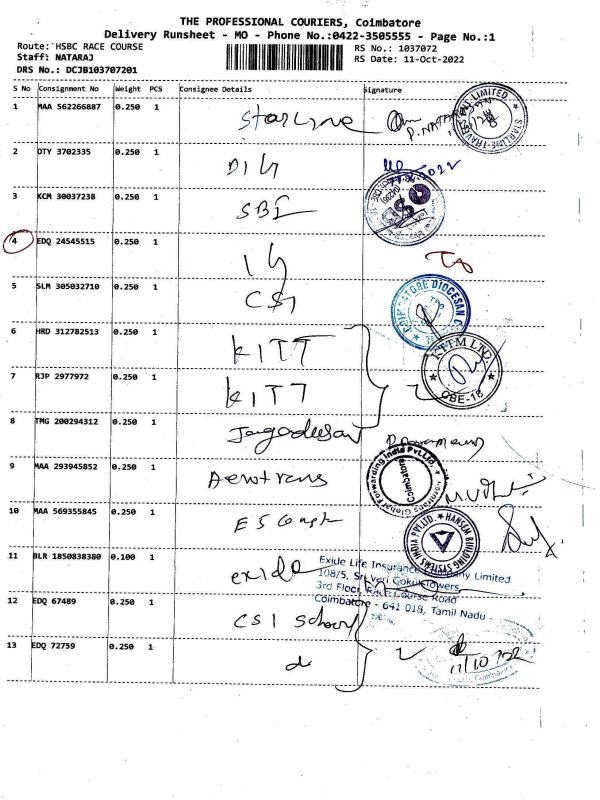 THE PROFESSIONAL COURIERS, Coimbatore
Delivery Runsheet - MO - Phone No.:0422-3505555 - Page No.:1
Route: HSBC RACE COURSE RS No.: 1037072
Staff: NATARAJ RS Date: 11-Oct-2022
DRS No.: DCJB103707201
S No Consignment No Weight PCS Consignee Details Signature
1 MAA 562266887 0.250 1 Starline
2 OTY 3702335 0.250 1
3 KCM 30037238 0.250 1 SBI
4 EDQ 24545515 0.250 1
5 SLM 305032710 0.250 1 CSI
COIMBATORE DIOCESAN
6 HRD 312782513 0.250 1 KITT
KTTM LTD.
CBE-18
7 RJP 2977972 0.250 1 KITT
8 TMG 200294312 0.250 1 Jagadeesan
9 MAA 293945852 0.250 1 Aerotrans
Global Forwarding India Pvt.Ltd.
Coimbatore
10 MAA 569355845 0.250 1
HANSEN BUILDING SYSTEMS INDIA PVT.LTD.
11 BLR 1850838380 0.100 1 exide
Exide Life Insurance Company Limited
108/5, Sri Veri Gokul Towers,
3rd Floor, Race Course Road
Coimbatore - 641 018, Tamil Nadu -
12 EDQ 67489 0.250 1 CSI School
13 EDQ 72759 0.250 1 do 2 11/10/22